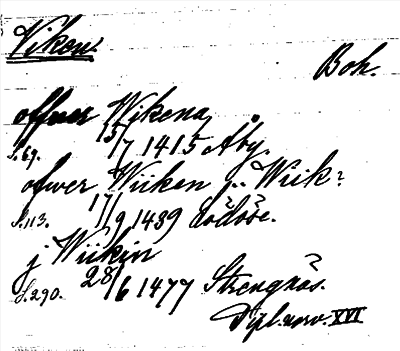 Vikon.
Boh.
offuer Wikena
S. 69. 15/7 1415 Åby.
ofwer Wiiken j.. Wiik?
S. 113. 17/9 1489 Lödöse.
j Wiikin
S. 290. 28/6 1477 Strengnäs.
Dipl. norv. XVI